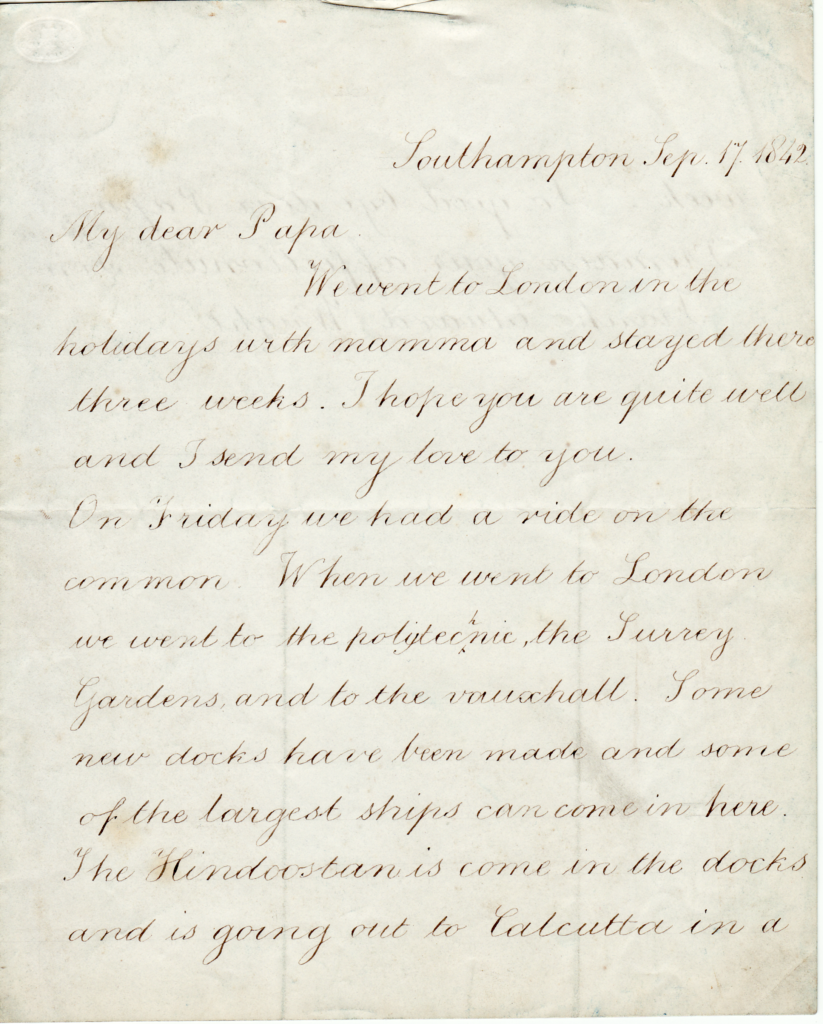 Southampton Sep. 17. 1842.
My dear Papa.
We went to London in the
holidays with mamma and stayed there
three weeks. I hope you are quite well
and I send my love to you.
On Friday we had a ride on the
common. When we went to London
we went to the polytechnic, the Surrey
Gardens, and to the vauxhall. Some
new docks have been made and some
of the largest ships can come in here.
The Hindoostan is come in the docks
and is going out to Calcutta in a